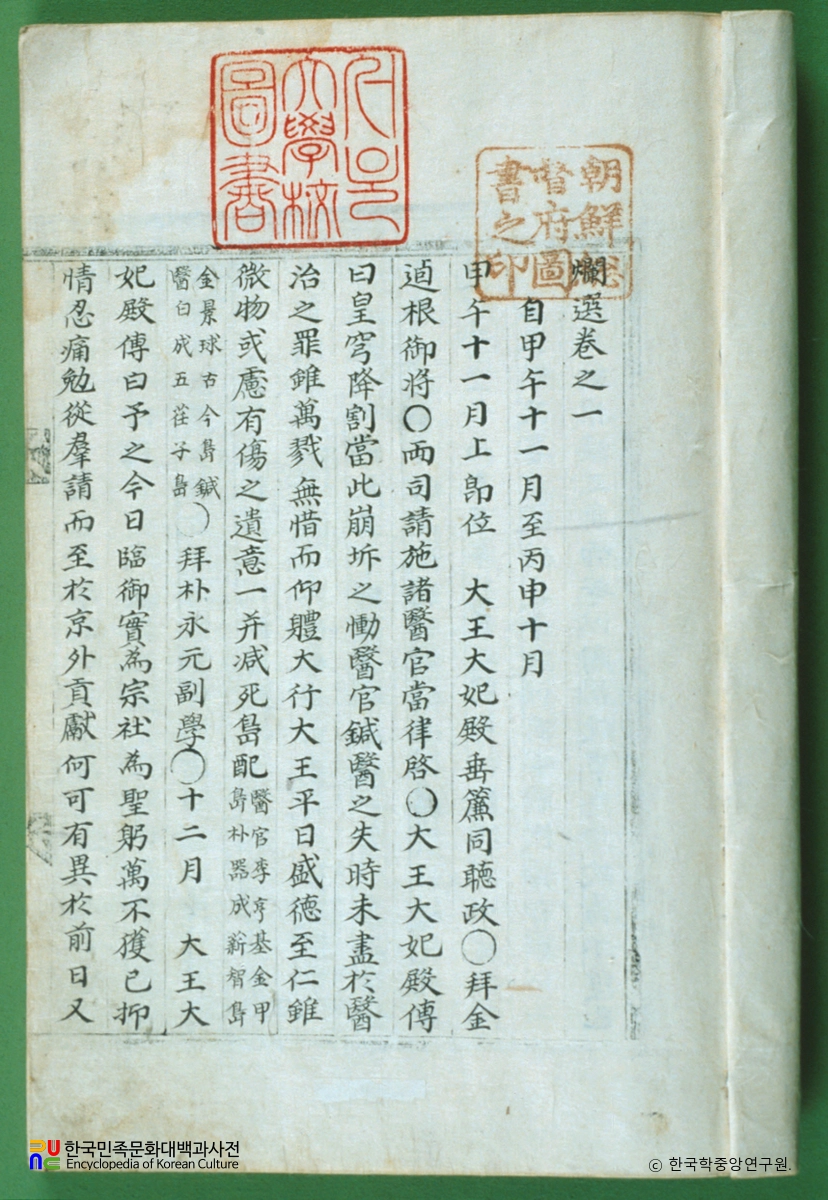 서울
大學校
圖書
朝鮮總
督府圖
書之印
爛選卷之一
自甲午十一月至丙申十月
甲午十一月上卽位 大王大妃殿垂簾同聽政〇拜金
逌根御將〇兩司請施諸醫官當律啓〇大王大妃殿傳
曰皇穹降割當此崩坼之慟醫官鍼醫之失時未盡於醫
治之罪雖萬戮無惜而仰體大行大王平日盛德至仁雖
微物或慮有傷之遺意一并减死島配醫官李亨基金甲
島朴器成薪智島
金景球古今島鍼
醫白成五荏子島〇拜朴永元副學〇十二月 大王大
妃殿傳曰予之今日臨御實爲宗社爲聖躬萬不獲已抑
情忍痛勉從羣請而至於京外貢獻何可有異於前日又
한국민족문화대백과사전
Encyclopedia of Korean Culture
ⓒ 한국학중앙연구원.